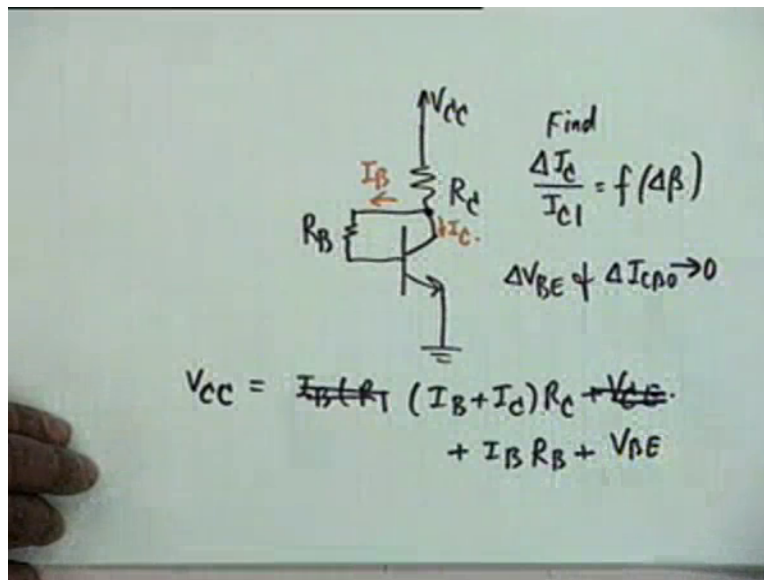 VCC
Find
ΔIC / IC1 = f(Δβ)
IB
RC
RB
IC.
ΔVBE & ΔICBO→0
VCC = (IB+IC)RC
+ IBRB + VBE